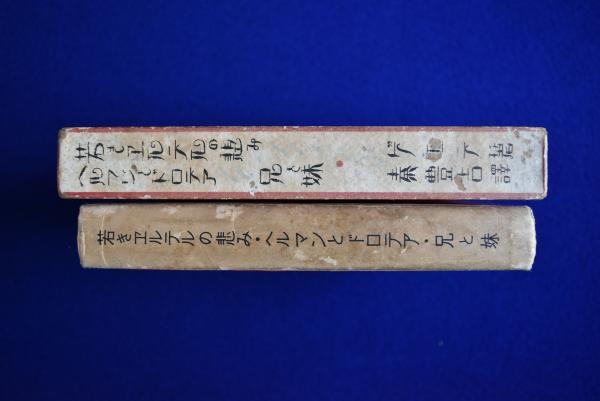 若きヱルテルの悲み
ヘルマンとドロテア 兄と妹
ゲエテ著
秦豊吉譯
若きヱルテルの悲み・ヘルマンとドロテア・兄と妹